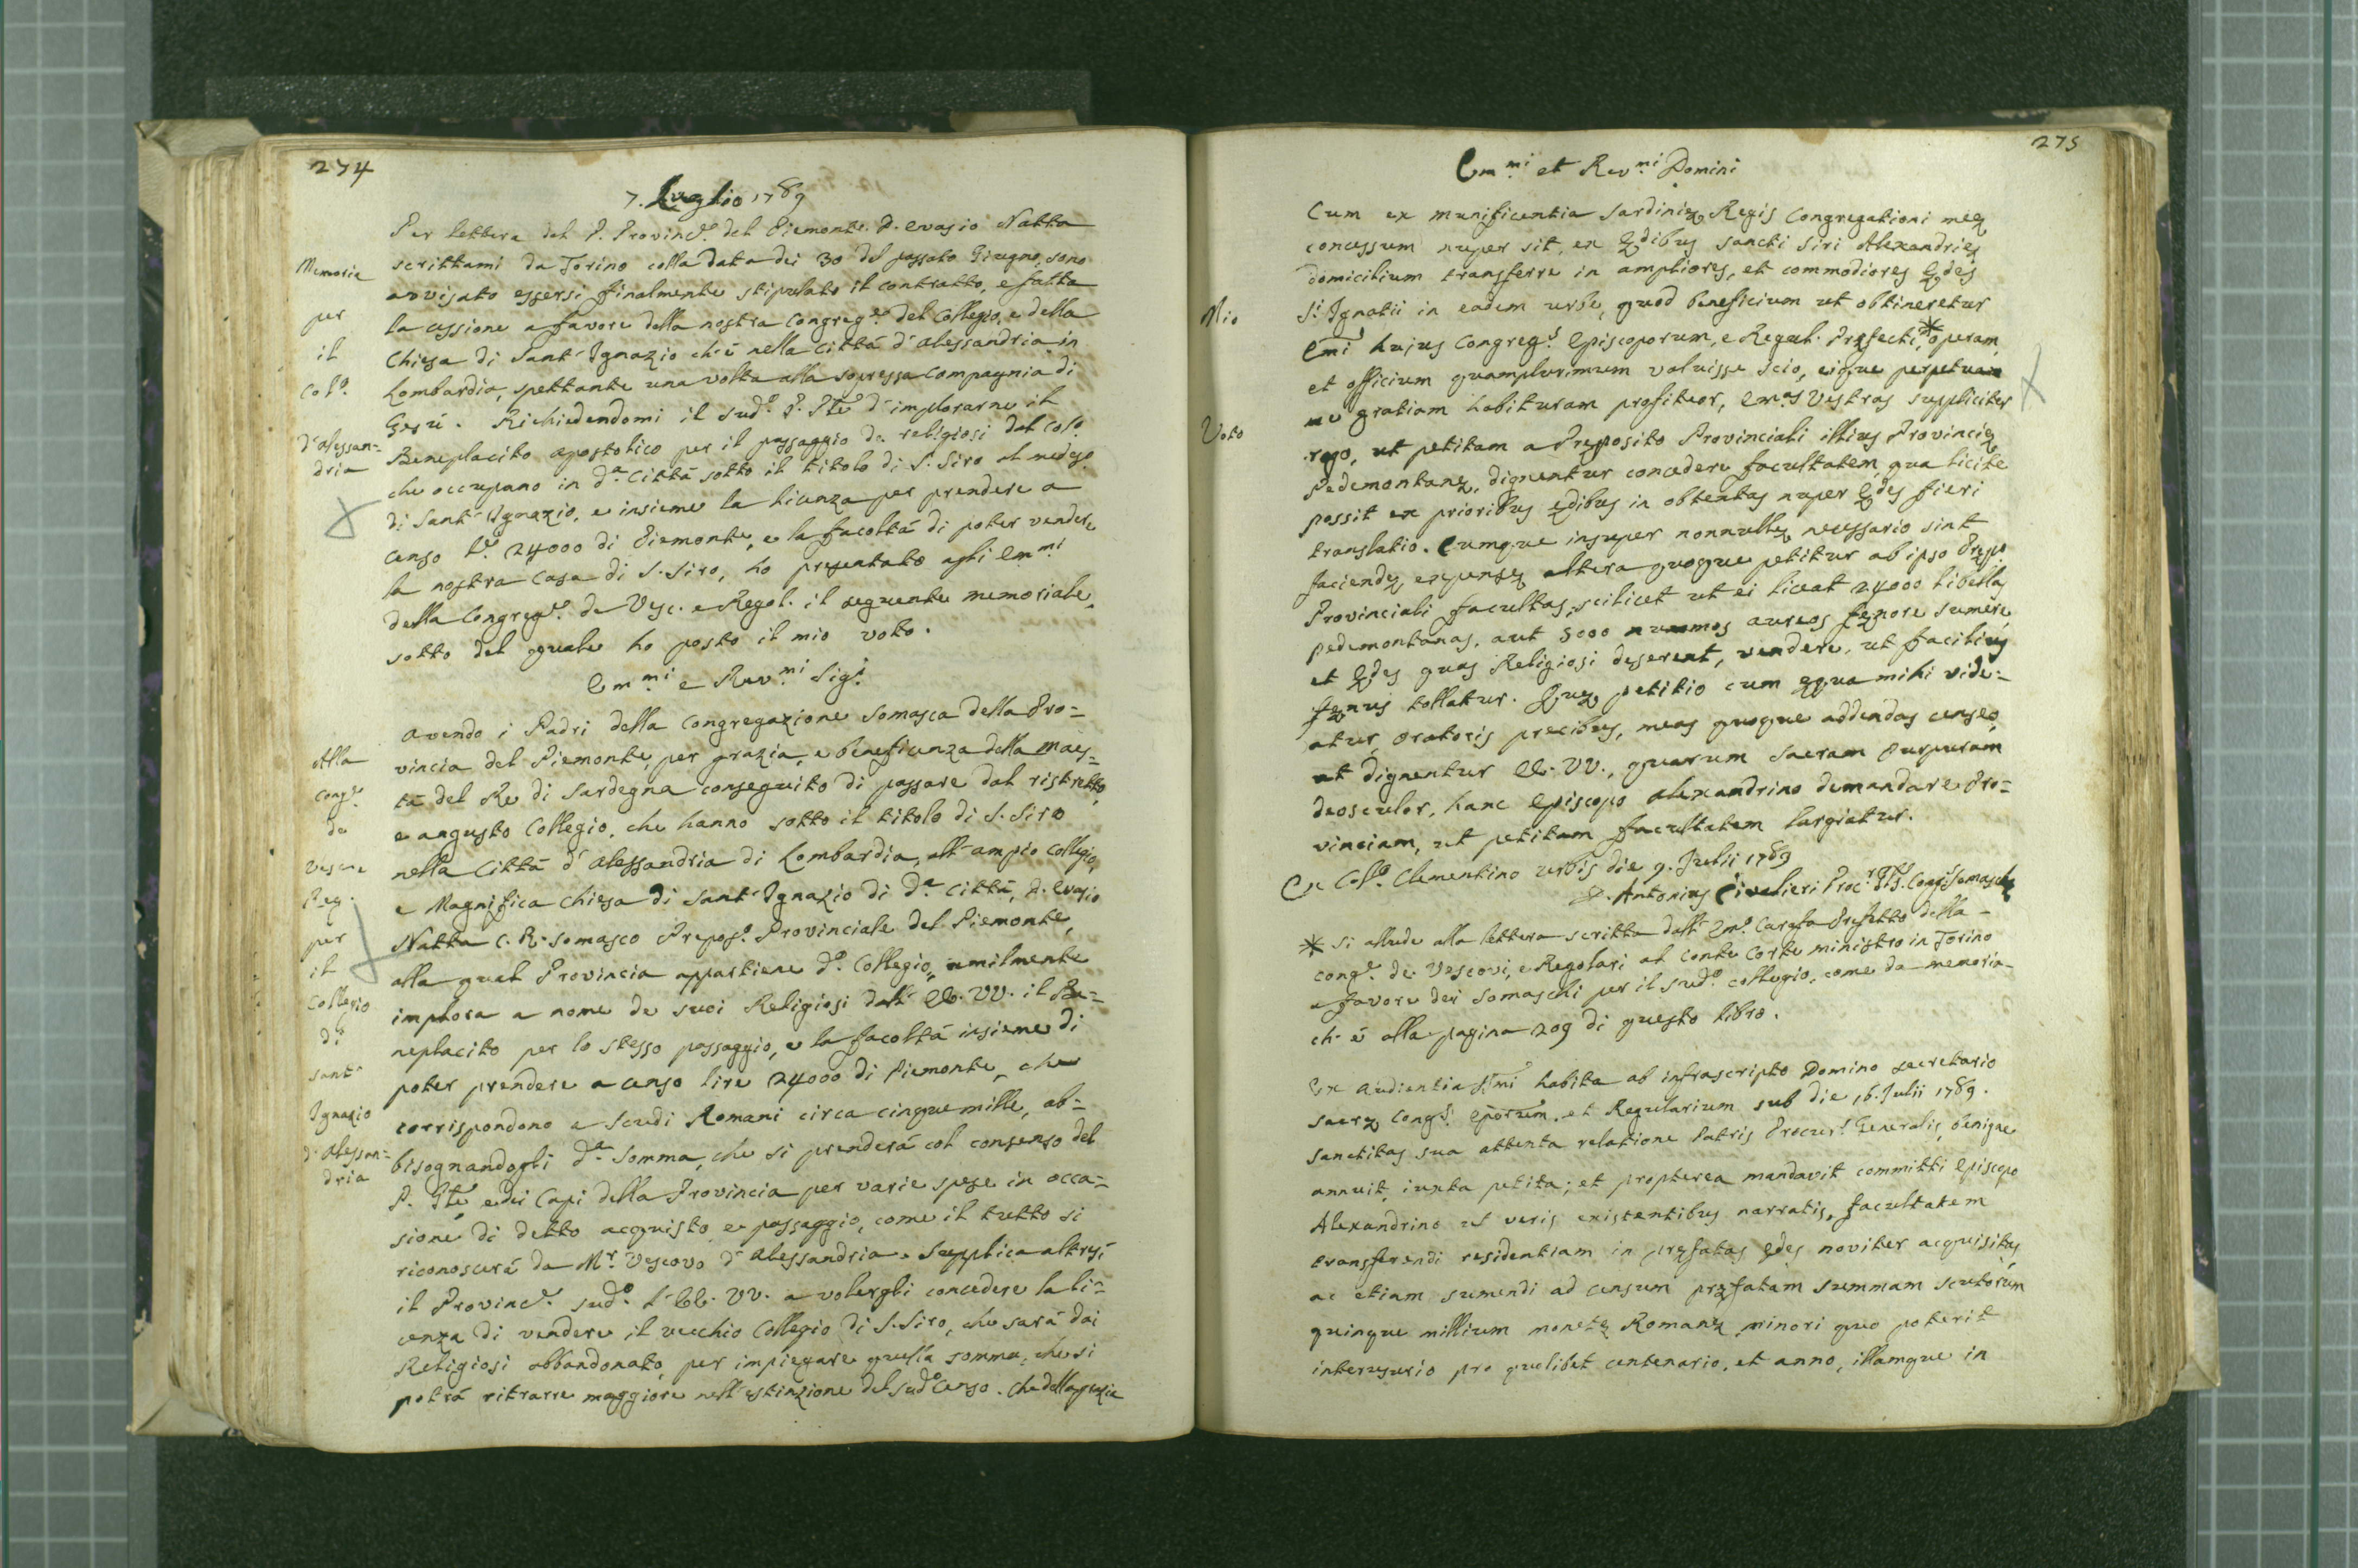 274
7. Luglio 1789
Per lettera del P. Provinc.le del Piemonte P. Evasio Natta
Memoria scrittami da Torino colla data dei 30 del passato Giugno, sono
avvisato essersi finalmente stipulato il contratto, e fatta
per la cessione a favore della nostra Congreg.e del Collegio, e della
il Chiesa di Sant'Ignazio ch'è nella Città d'Alessandria in
Col.o Lombardia, spettante una volta alla sopressa Compagnia di
Gesù. Richiedendomi il sud.o P. P.le d'implorarne il
d'Alessan= Beneplacito apostolico per il passaggio de religiosi dal Col.o
dria che occupano in d.a Città sotto il titolo di S. Siro al med.o
di Sant'Ignazio, e insieme la licenza per prendere a
censo L.e 24000 di Piemonte, e la facoltà di poter vendere
la nostra Casa di S. Siro, ho presentato agli Em.mi
della Congreg.e de Vesc. e Regol. il seguente memoriale,
sotto del quale ho posto il mio voto.
Em.mi e Rev.mi Sig.i
Avendo i Padri della Congregazione Somasca della Pro=
Alla vincia del Piemonte, per grazia, e beneficenza della Maes=
Cong.e tà del Re di Sardegna conseguito di passare dal ristretto,
de e angusto Collegio, che hanno sotto il titolo di S. Siro
Vesc. e nella Città d'Alessandria di Lombardia, all'ampio Collegio,
Reg. e Magnifica Chiesa di Sant'Ignazio di d.a Città, P. Evasio
per Natta C. R. Somasco Prepos.o Provinciale del Piemonte,
il alla qual Provincia appartiene d.o Collegio, umilmente
Collegio implora a nome de suoi Religiosi dall'EE. VV. il Be=
di neplacito per lo stesso passaggio, e la facoltà insieme di
Sant' poter prendere a censo lire 24000 di Piemonte, che
Ignazio corrispondono a Scudi Romani circa cinque mille, ab=
d'Alessan= bisognandogli d.a Somma, che si prenderà col consenso del
dria P. P.le e dei Capi della Provincia per varie spese in occa=
sione di detto acquisto, e passaggio, come il tutto si
riconoscerà da M.r Vescovo d'Alessandria. Supplica altresì
il Provinc.le sud.o l'EE. VV. a volergli concedere la li=
cenza di vendere il vecchio Collegio di S. Siro, che sarà dai
Religiosi abbandonato, per impiegare quella somma, che si
potrà ritrarre maggiore nell'estinzione del sud.o Censo. Che della grazia
275
Em.mi et Rev.mi Domini
Cum ex munificentia Sardiniæ Regis Congregationi meæ
concessum nuper sit, ex Ædibus Sancti Siri Alexandriæ
domicilium transferre in ampliores, et commodiores Ædes
Mio S.i Ignatii in eadem urbe, quod beneficium ut obtineretur
Emi hujus Congreg.s Episcoporum, e Regul. Præfecti,* operam,
et officium quamplurimum valuisse scio, eique perpetuam
me gratiam habituram profiteor, Em.as Vestras suppliciter
Voto rogo, ut petitam a Præposito Provinciali illius Provinciæ
Pedemontanæ, dignentur concedere facultatem, qua licite
possit ex prioribus ædibus in obtentas nuper Ædes fieri
translatio. Cumque insuper nonnullæ necessario sint
faciendæ expensæ altera quoque petitur ab ipso Præpo
Provinciali facultas, scilicet ut ei liceat 24000 libellas
pedemontanas, aut 5000 nummos aureos fænore sumere,
et Ædes quas Religiosi deserent, vendere, ut facilius
fænus tollatur. Quæ petitio cum æqua mihi vide=
atur, Oratoris precibus, meas quoque addendas censeo,
ut dignentur EE. VV., quarum Sacram Purpuram
deosculor, hanc Episcopo Alexandrino demandare Pro=
vinciam, ut petitam facultatem largiatur.
Ex Coll.o Clementino Urbis die 9. Julii 1789
D. Antonius Civalieri Proc.r G.lis Cong.s Somaschæ
* Si allude alla lettera scritta dall'Em.o Carafa Prefetto della
Cong.e de Vescovi, e Regolari al Conte Corte ministro in Torino
a favore dei Somaschi per il sud.o collegio, come da memoria
ch'è alla pagina 209 di questo libro.
Ex Audientia SSmi habita ab infrascripto Domino Secretario
Sacræ Cong.s Eporum. et Regularium sub die 16. Julii 1789.
Sanctitas sua attenta relatione Patris Procur.s Generalis, benigne
annuit iuxta petita; et propterea mandavit committi Episcopo
Alexandrino ut veris existentibus narratis, facultatem
transferendi residentiam in præfatas ædes noviter acquisitas,
ac etiam sumendi ad censum præfatam summam scutorum
quinque millium monetæ Romanæ minori quo poterit
interusurio pro quolibet centenario, et anno, illamque in